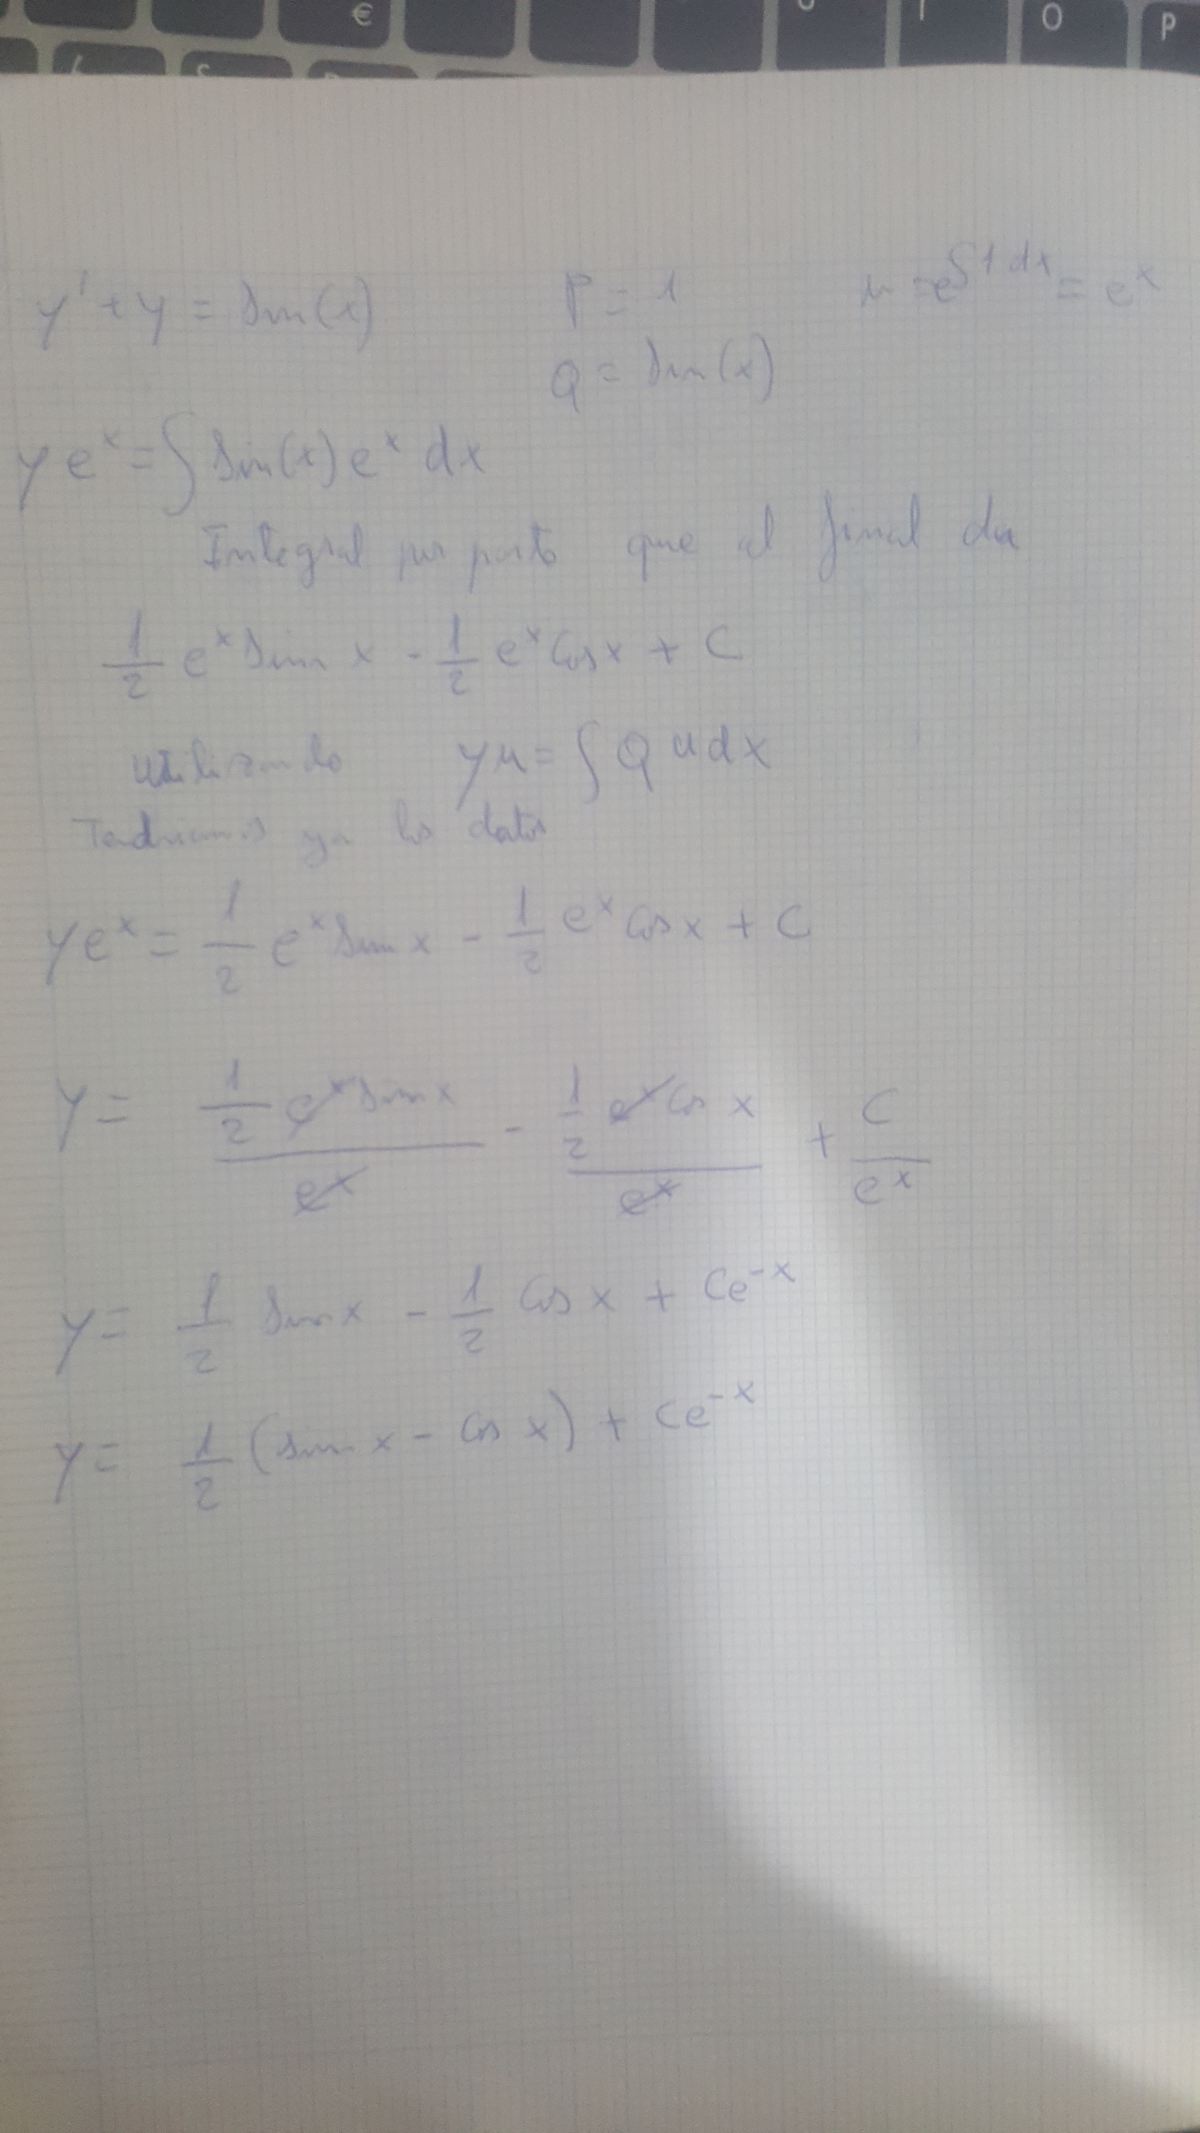 € O P
y' + y = Sin(x) P = 1 u = e^∫1 dx = e^x
Q = Sin(x)
y e^x = ∫ Sin(x) e^x dx
Integral por parts que al final da
1/2 e^x Sin x - 1/2 e^x Cos x + C
Utilizando yu = ∫ Q u dx
Tendriamos ya los datos
y e^x = 1/2 e^x Sin x - 1/2 e^x Cos x + C
y = (1/2 e^x Sin x)/e^x - (1/2 e^x Cos x)/e^x + C/e^x
y = 1/2 Sin x - 1/2 Cos x + Ce^-x
y = 1/2 (Sin x - Cos x) + Ce^-x